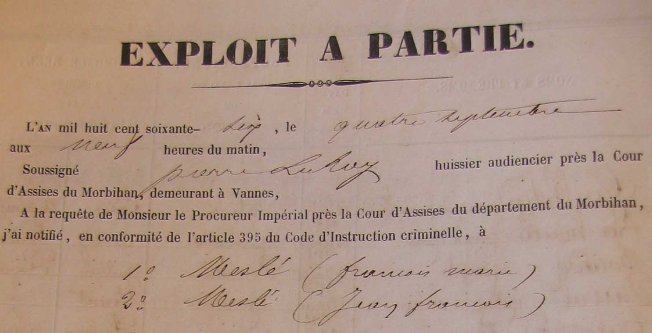 EXPLOIT A PARTIE.
L'AN mil huit cent soixante- dix, le quatre septembre
aux neuf heures du matin,
Soussigné pierre LeRoy huissier audiencier près la Cour
d'Assises du Morbihan, demeurant à Vannes,
A la requête de Monsieur le Procureur Impérial près la Cour d'Assises du département du Morbihan,
j'ai notifié, en conformité de l'article 395 du Code d'Instruction criminelle, à
1º Meslé (francois marie)
2º Meslé (Jean francois)